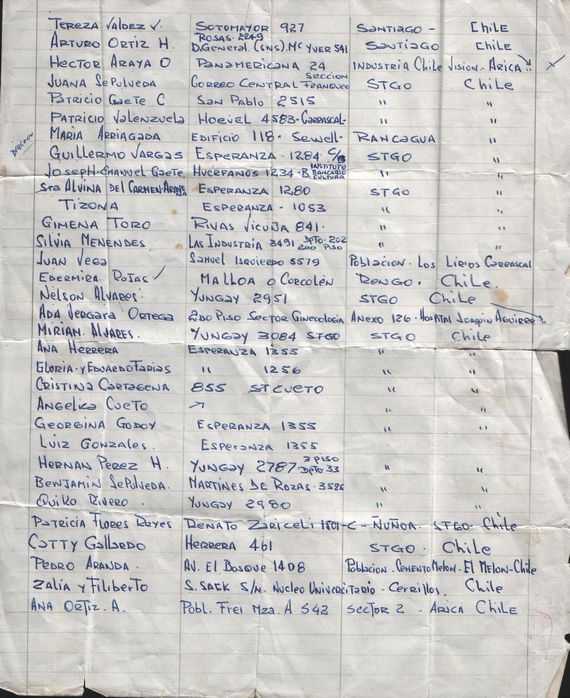 Tereza Valdez V. Sotomayor 927 Santiago - Chile
Arturo Ortiz H. Rosas-2249 D.General.(SNS).Mc YVER 541 Santiago Chile
Hector Araya O Panamericana 24 Industria Chile Vision - Arica "
Juana Sepulveda Correo Central Sección Franqueo STGO Chile
Patricio Gaete C San Pablo 2515 " "
Patricio Valenzuela Hoevel 4583 - Carrascal - " "
Maria Arriagada Edificio 118 - Sewell - Rancagua "
Guillermo Vargas Esperanza - 1284 STGO "
Joseph-Emanuel Gaete Huerfanos 1234-B Instituto Bancario Cultura " "
Sra Alvina del Carmen Esperanza 1280 STGO "
Tizona Esperanza - 1053 " "
Gimena Toro Rivas Vicuja 841. " "
Silvia Menendes Las Industria 3491 Dpto-202 2do Piso " "
Juan Vega Samuel Isquierdo 5579 Poblacion - Los Lirios Carrascal
Edermira Rojas Malloa o Corcolén Rengo. Chile.
Nelson Alvares Yungay 2951 STGO Chile
Ada Vergara Ortega 2do Piso Sector Ginecologia Anexo 126 - Hospital Joaquin Aguirre "
Mirian. Alvares. Yungay 3084 STGO STGO Chile
Ana Herrera Esperanza 1355 " "
Gloria - y Eduardo Farias " 1256 " "
Cristina Cartagena 855 St Cueto " "
Angelica Cueto " "
Georgina Godoy Esperanza 1355 " "
Luiz Gonzales. Esperanza 1355 " "
Hernan Perez H. Yungay 2787 3 Piso Dpto 33 " "
Benjamin Sepulveda. Martines de Rozas - 3526 " "
Quiko Rivero Yungay 2980 " "
Patricia Flores Reyes Renato Zariceli 1501-C - Ñuñoa - STGO - Chile
Catty Gallardo Herrera 461 STGO - Chile
Pedro Aranda. Av. El Bosque 1408 Poblacion - Cemento Melon - El Melon - Chile
Zalia y Filiberto S. Sack S/N. Nucleo Univercitario - Cerrillos. Chile
Ana Ortiz. A. Pobl. Frei Mza. A S42 Sector 2 - Arica Chile